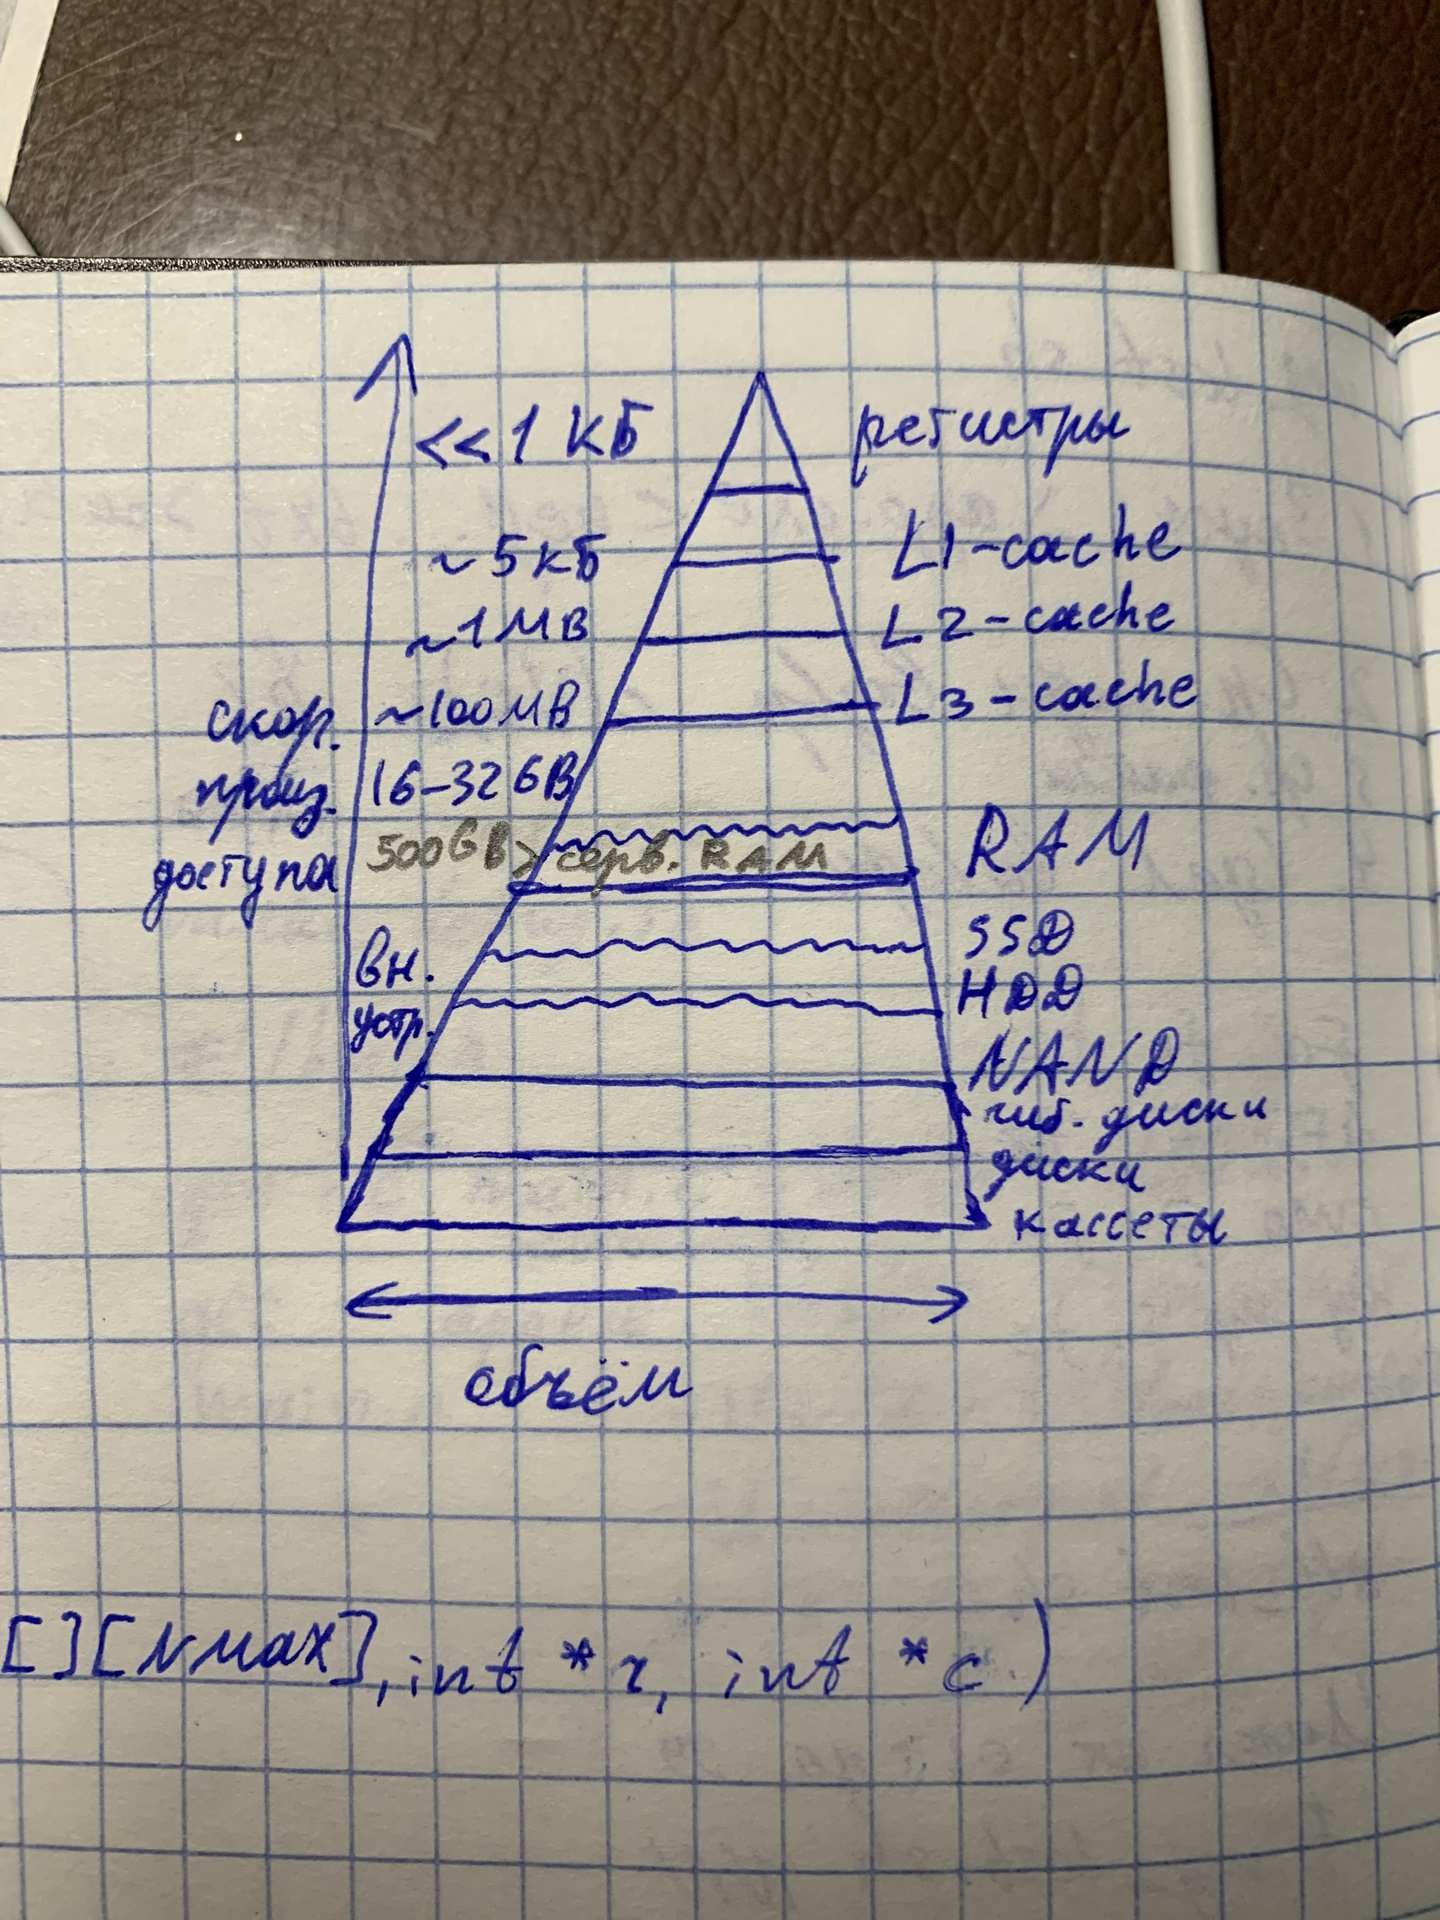 <<1 КБ регистры
~5 КБ L1-cache
~1 MB L2-cache
~100 MB L3-cache
скор.
произ. 16-32 GB
доступа 500GB> серв. RAM RAM
SSD
вн.
HDD
устр.
NAND
гиб. диски
диски
кассеты
объём
[][NMAX], int *r, int *c)